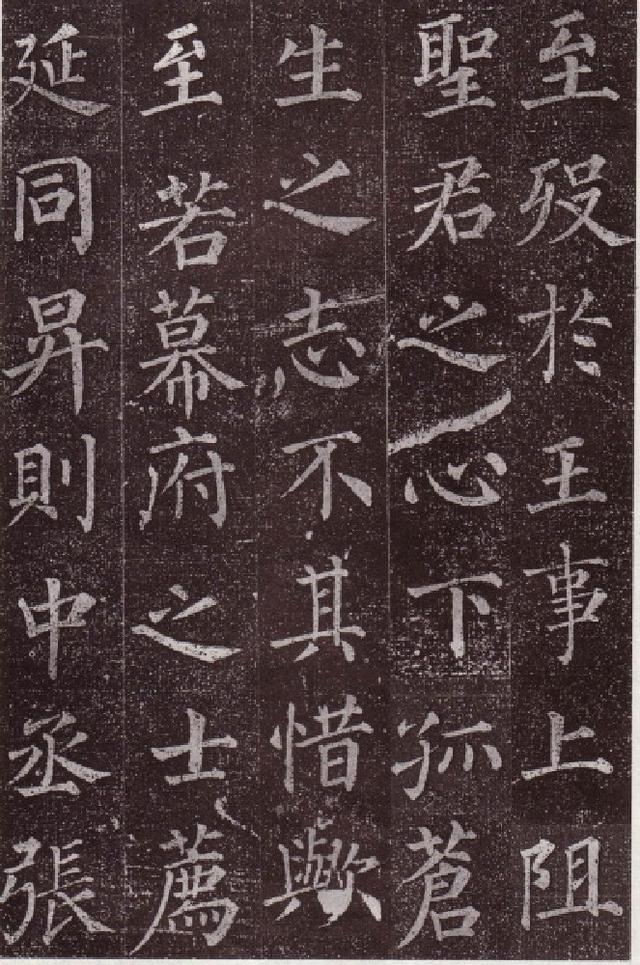 至歿於王事上阻
聖君之心下孤蒼
生之志不其惜歟
至若幕府之士薦
延同昇則中丞張